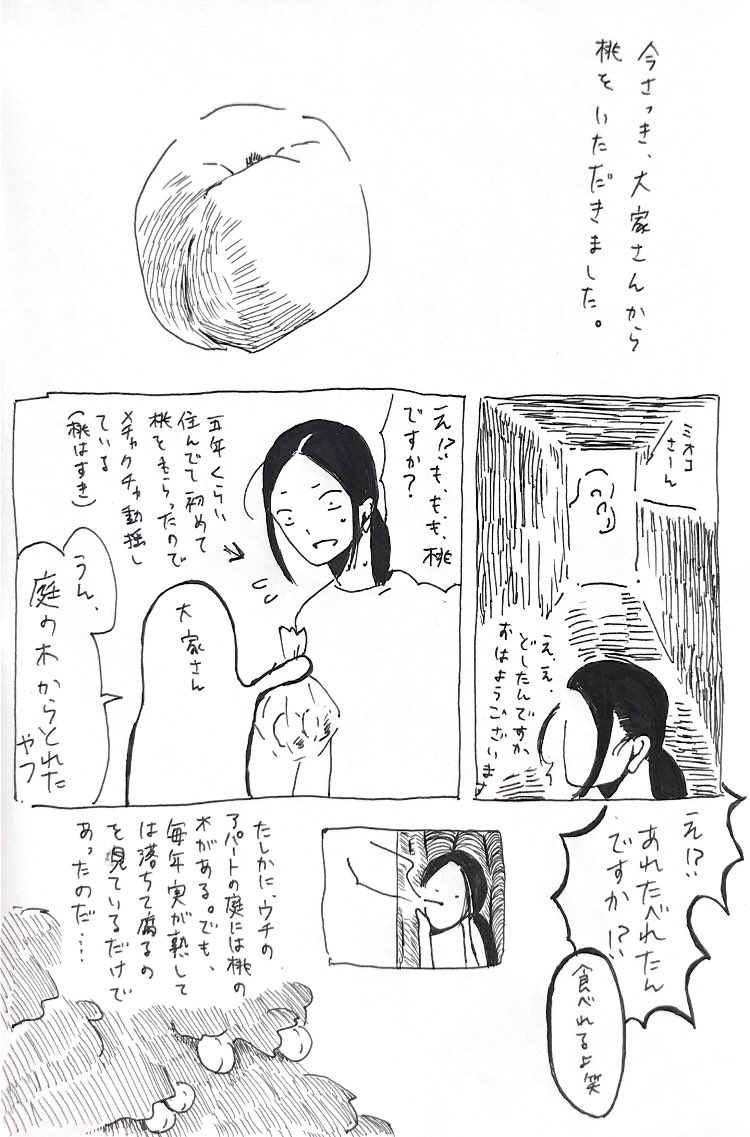 今さっき、大家さんから
桃をいただきました。
ミホコ
さーん
え、え、
どしたんですか
おはようございます
え!?も、も、も、桃
ですか?
五年くらい
住んでて初めて
桃をもらったので
メチャクチャ動揺し
ている
(桃はすき)
大家さん
うん、
庭の木からとれた
やつ
え!?
あれたべれたん
ですか!?
食べれるよ笑
たしかに、ウチの
アパートの庭には桃の
木がある。でも、
毎年実が熟して
は落ちて腐るの
を見ているだけで
あったのだ……